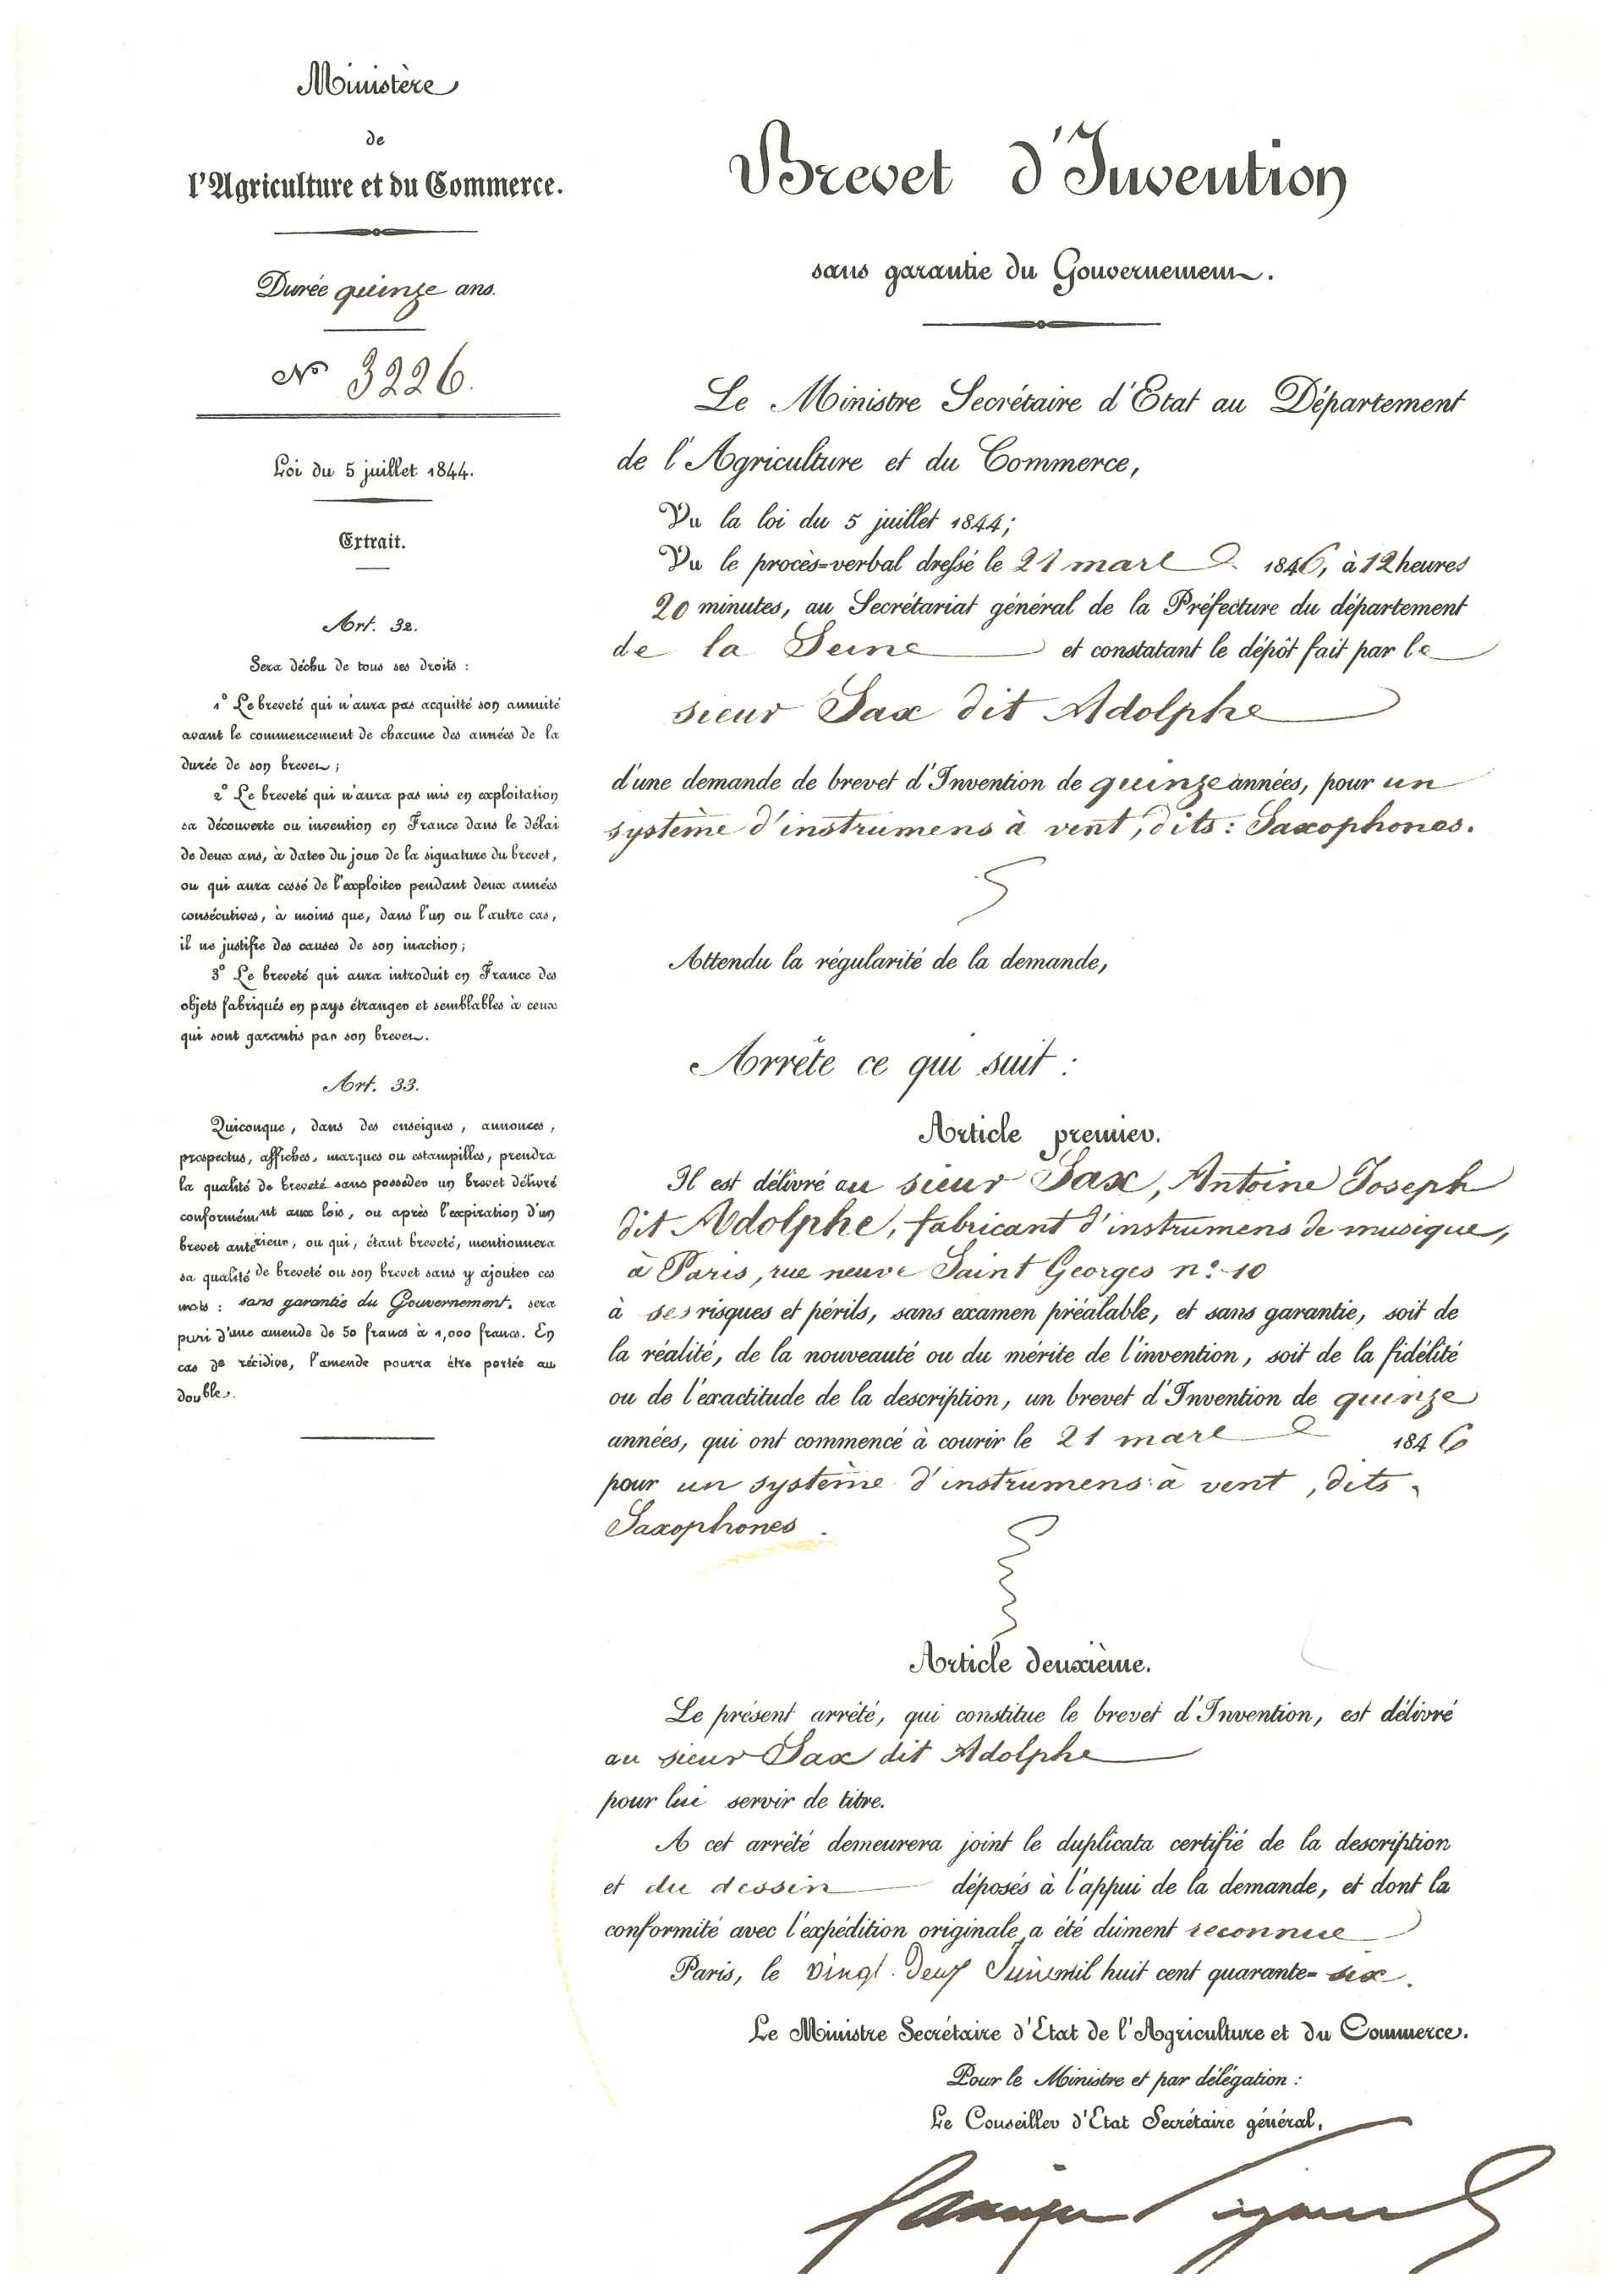 Ministère
de
l'Agriculture et du Commerce.
Durée quinze ans.
N° 3226.
Loi du 5 juillet 1844.
Extrait.
Art. 32.
Sera déchu de tous ses droits :
1° Le breveté qui n'aura pas acquitté son annuité
avant le commencement de chacune des années de la
durée de son brevet ;
2° Le breveté qui n'aura pas mis en exploitation
sa découverte ou invention en France dans le délai
de deux ans, à dater du jour de la signature du brevet,
ou qui aura cessé de l'exploiter pendant deux années
consécutives, à moins que, dans l'un ou l'autre cas,
il ne justifie des causes de son inaction ;
3° Le breveté qui aura introduit en France des
objets fabriqués en pays étranger et semblables à ceux
qui sont garantis par son brevet.
Art. 33.
Quiconque, dans des enseignes, annonces,
prospectus, affiches, marques ou estampilles, prendra
la qualité de breveté sans posséder un brevet délivré
conformément aux lois, ou après l'expiration d'un
brevet antérieur, ou qui, étant breveté, mentionnera
sa qualité de breveté ou son brevet sans y ajouter ces
mots : sans garantie du Gouvernement, sera
puni d'une amende de 50 francs à 1,000 francs. En
cas de récidive, l'amende pourra être portée au
double.
Brevet d'Invention
sans garantie du Gouvernement.
Le Ministre Secrétaire d'Etat au Département
de l'Agriculture et du Commerce,
Vu la loi du 5 juillet 1844 ;
Vu le procès-verbal dressé le 21 mars 1846, à 12 heures
20 minutes, au Secrétariat général de la Préfecture du département
de la Seine et constatant le dépôt fait par le
sieur Sax dit Adolphe
d'une demande de brevet d'Invention de quinze années, pour un
système d'instrumens à vent, dits : Saxophones.
Attendu la régularité de la demande,
Arrête ce qui suit :
Article premier.
Il est délivré au sieur Sax, Antoine Joseph
dit Adolphe, fabricant d'instrumens de musique,
à Paris, rue neuve Saint Georges n° 10
à ses risques et périls, sans examen préalable, et sans garantie, soit de
la réalité, de la nouveauté ou du mérite de l'invention, soit de la fidélité
ou de l'exactitude de la description, un brevet d'Invention de quinze
années, qui ont commencé à courir le 21 mars 1846
pour un système d'instrumens à vent, dits
Saxophones.
Article deuxième.
Le présent arrêté, qui constitue le brevet d'Invention, est délivré
au sieur Sax dit Adolphe
pour lui servir de titre.
A cet arrêté demeurera joint le duplicata certifié de la description
et du dessin déposés à l'appui de la demande, et dont la
conformité avec l'expédition originale a été dûment reconnue
Paris, le vingt-deux Juin mil huit cent quarante-six.
Le Ministre Secrétaire d'Etat de l'Agriculture et du Commerce.
Pour le Ministre et par délégation :
Le Conseiller d'Etat Secrétaire général,